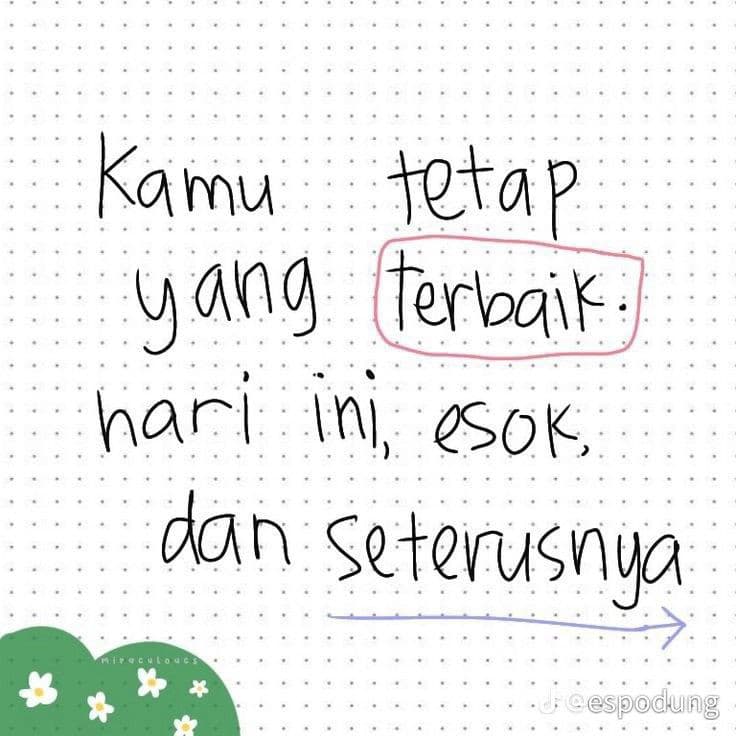 Kamu tetap
yang terbaik.
hari ini, esok,
dan seterusnya
miraculoucs
@espodung